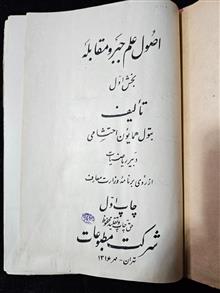 اصول علم جبر و مقابله
بخش اول
تألیف
بتول همایون احتشامی
دبیر ریاضیات
از روی برنامهٔ وزارت معارف
چاپ اول
حق چاپ و تقلید محفوظ
شرکت مطبوعات
تهران - مهر ۱۳۱۶